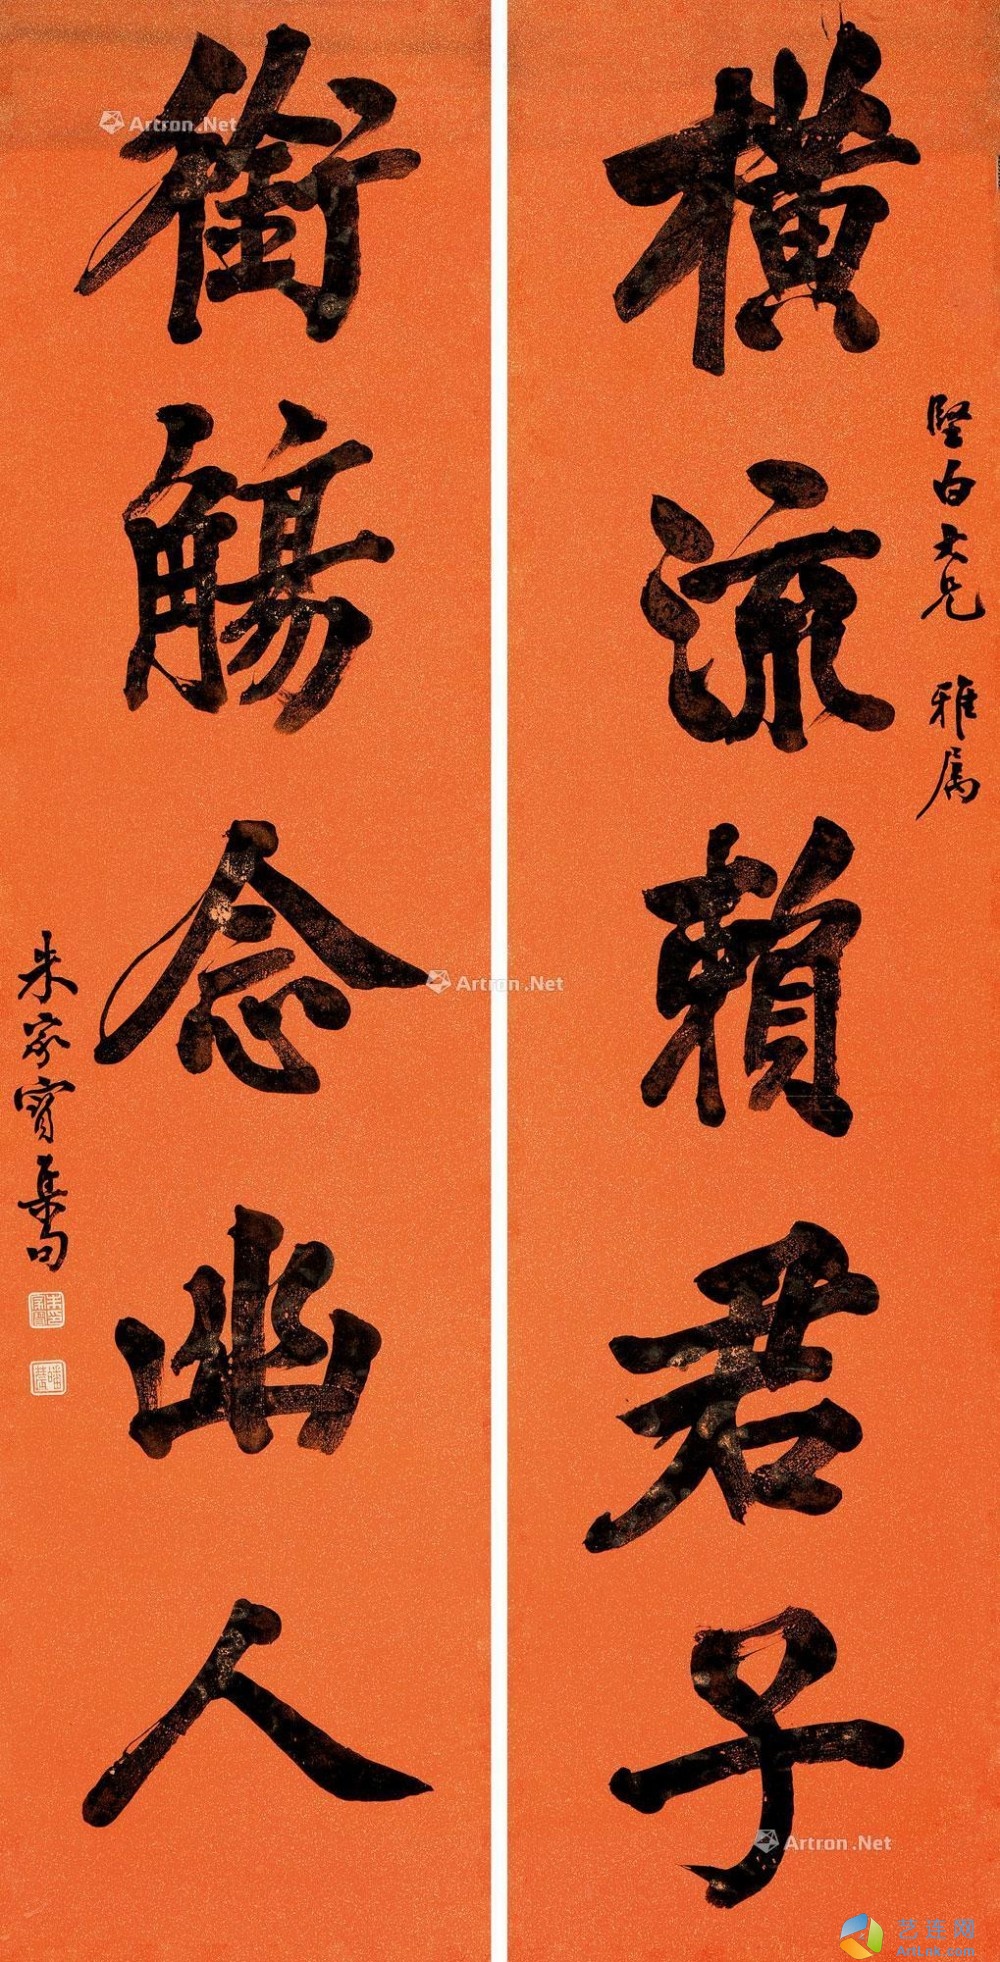 堅白大兄 雅属
橫流賴君子
銜觴念幽人
朱家寶集句
Artron.Net
Artron.Net
Artron.Net
艺连网
ArtLink.com